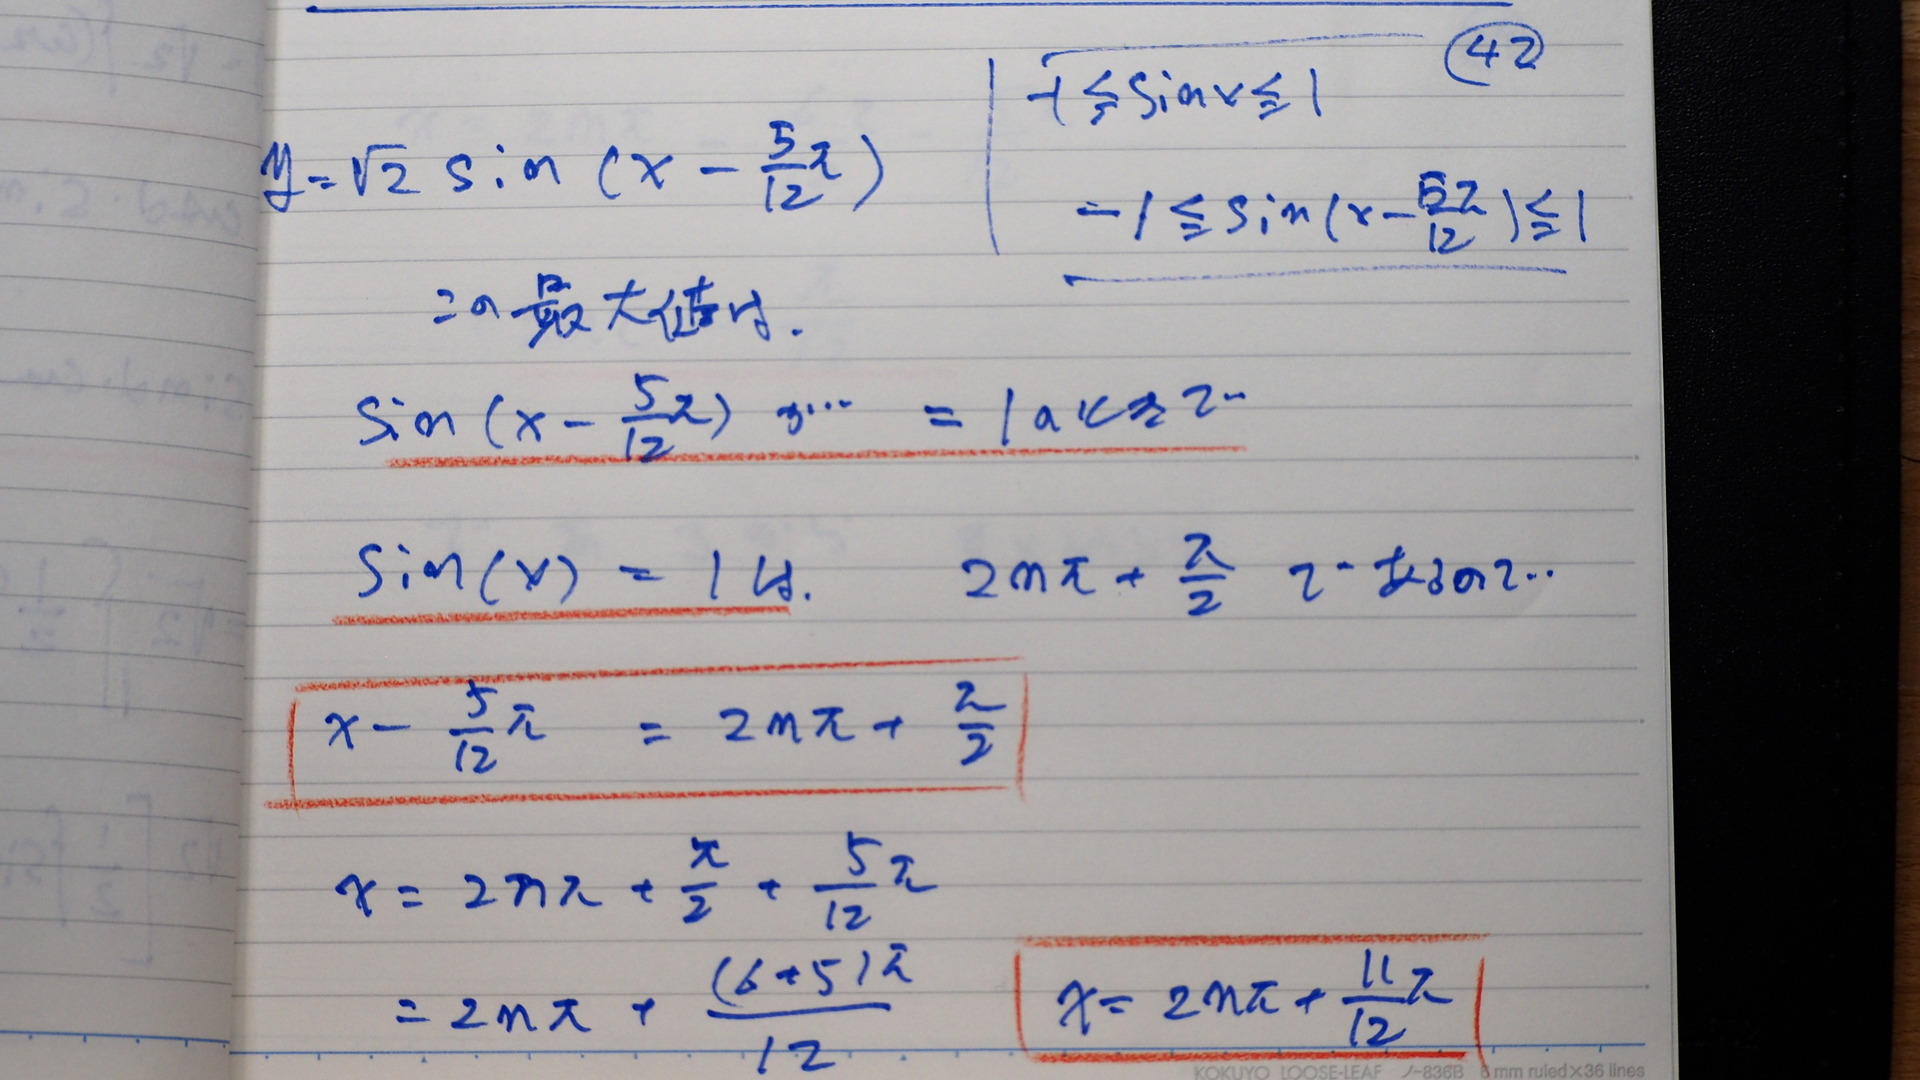 ㊷
y=√2 sin(x - 5/12 π)
-1≦sinx≦1
-1≦sin(x-5π/12)≦1
この最大値は.
sin(x - 5/12 π) が… = 1のときで..
sin(x) = 1は. 2nπ + π/2 で あるので..
x - 5/12 π = 2nπ + π/2
x = 2nπ + π/2 + 5/12 π
= 2nπ + (6+5)π/12
x = 2nπ + 11/12 π
KOKUYO LOOSE-LEAF ノ-836B 6 mm ruled×36 lines